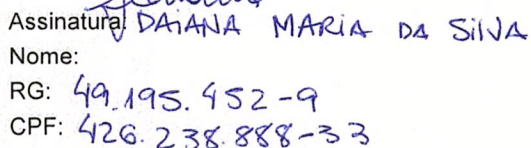 Assinatura: DAIANA MARIA DA SILVA
Nome:
RG: 49.195.452-9
CPF: 426.238.888-33